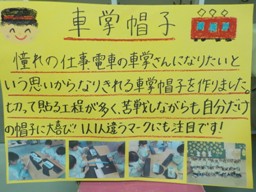 車掌帽子
憧れの仕事電車の車掌さんになりたいと
いう思いから、なりきれる車掌帽子を作りました。
切って貼る工程が多く、苦戦しながらも自分だけ
の帽子に大喜び!1人1人違うマークにも注目です!